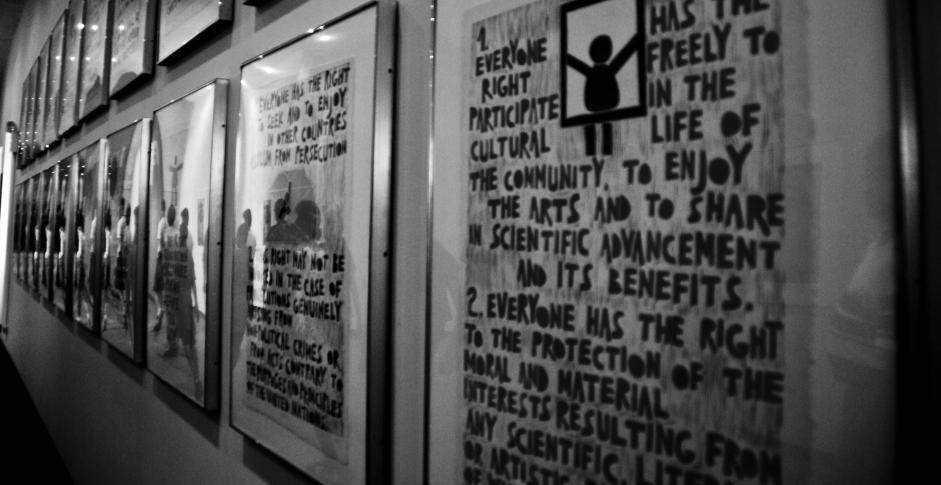 EVERYONE HAS THE RIGHT
TO SEEK AND TO ENJOY
IN OTHER COUNTRIES
ASYLUM FROM PERSECUTION
RIGHT MAY NOT BE
IN THE CASE OF
GENUINELY
FROM
POLITICAL CRIMES OR
FROM ACTS CONTRARY TO
THE PURPOSES AND PRINCIPLES
OF THE UNITED NATIONS.
1.
EVERYONE HAS THE
RIGHT FREELY TO
PARTICIPATE IN THE
CULTURAL LIFE OF
THE COMMUNITY, TO ENJOY
THE ARTS AND TO SHARE
IN SCIENTIFIC ADVANCEMENT
AND ITS BENEFITS.
2. EVERYONE HAS THE RIGHT
TO THE PROTECTION OF THE
MORAL AND MATERIAL
INTERESTS RESULTING FROM
ANY SCIENTIFIC, LITERARY
OR ARTISTIC